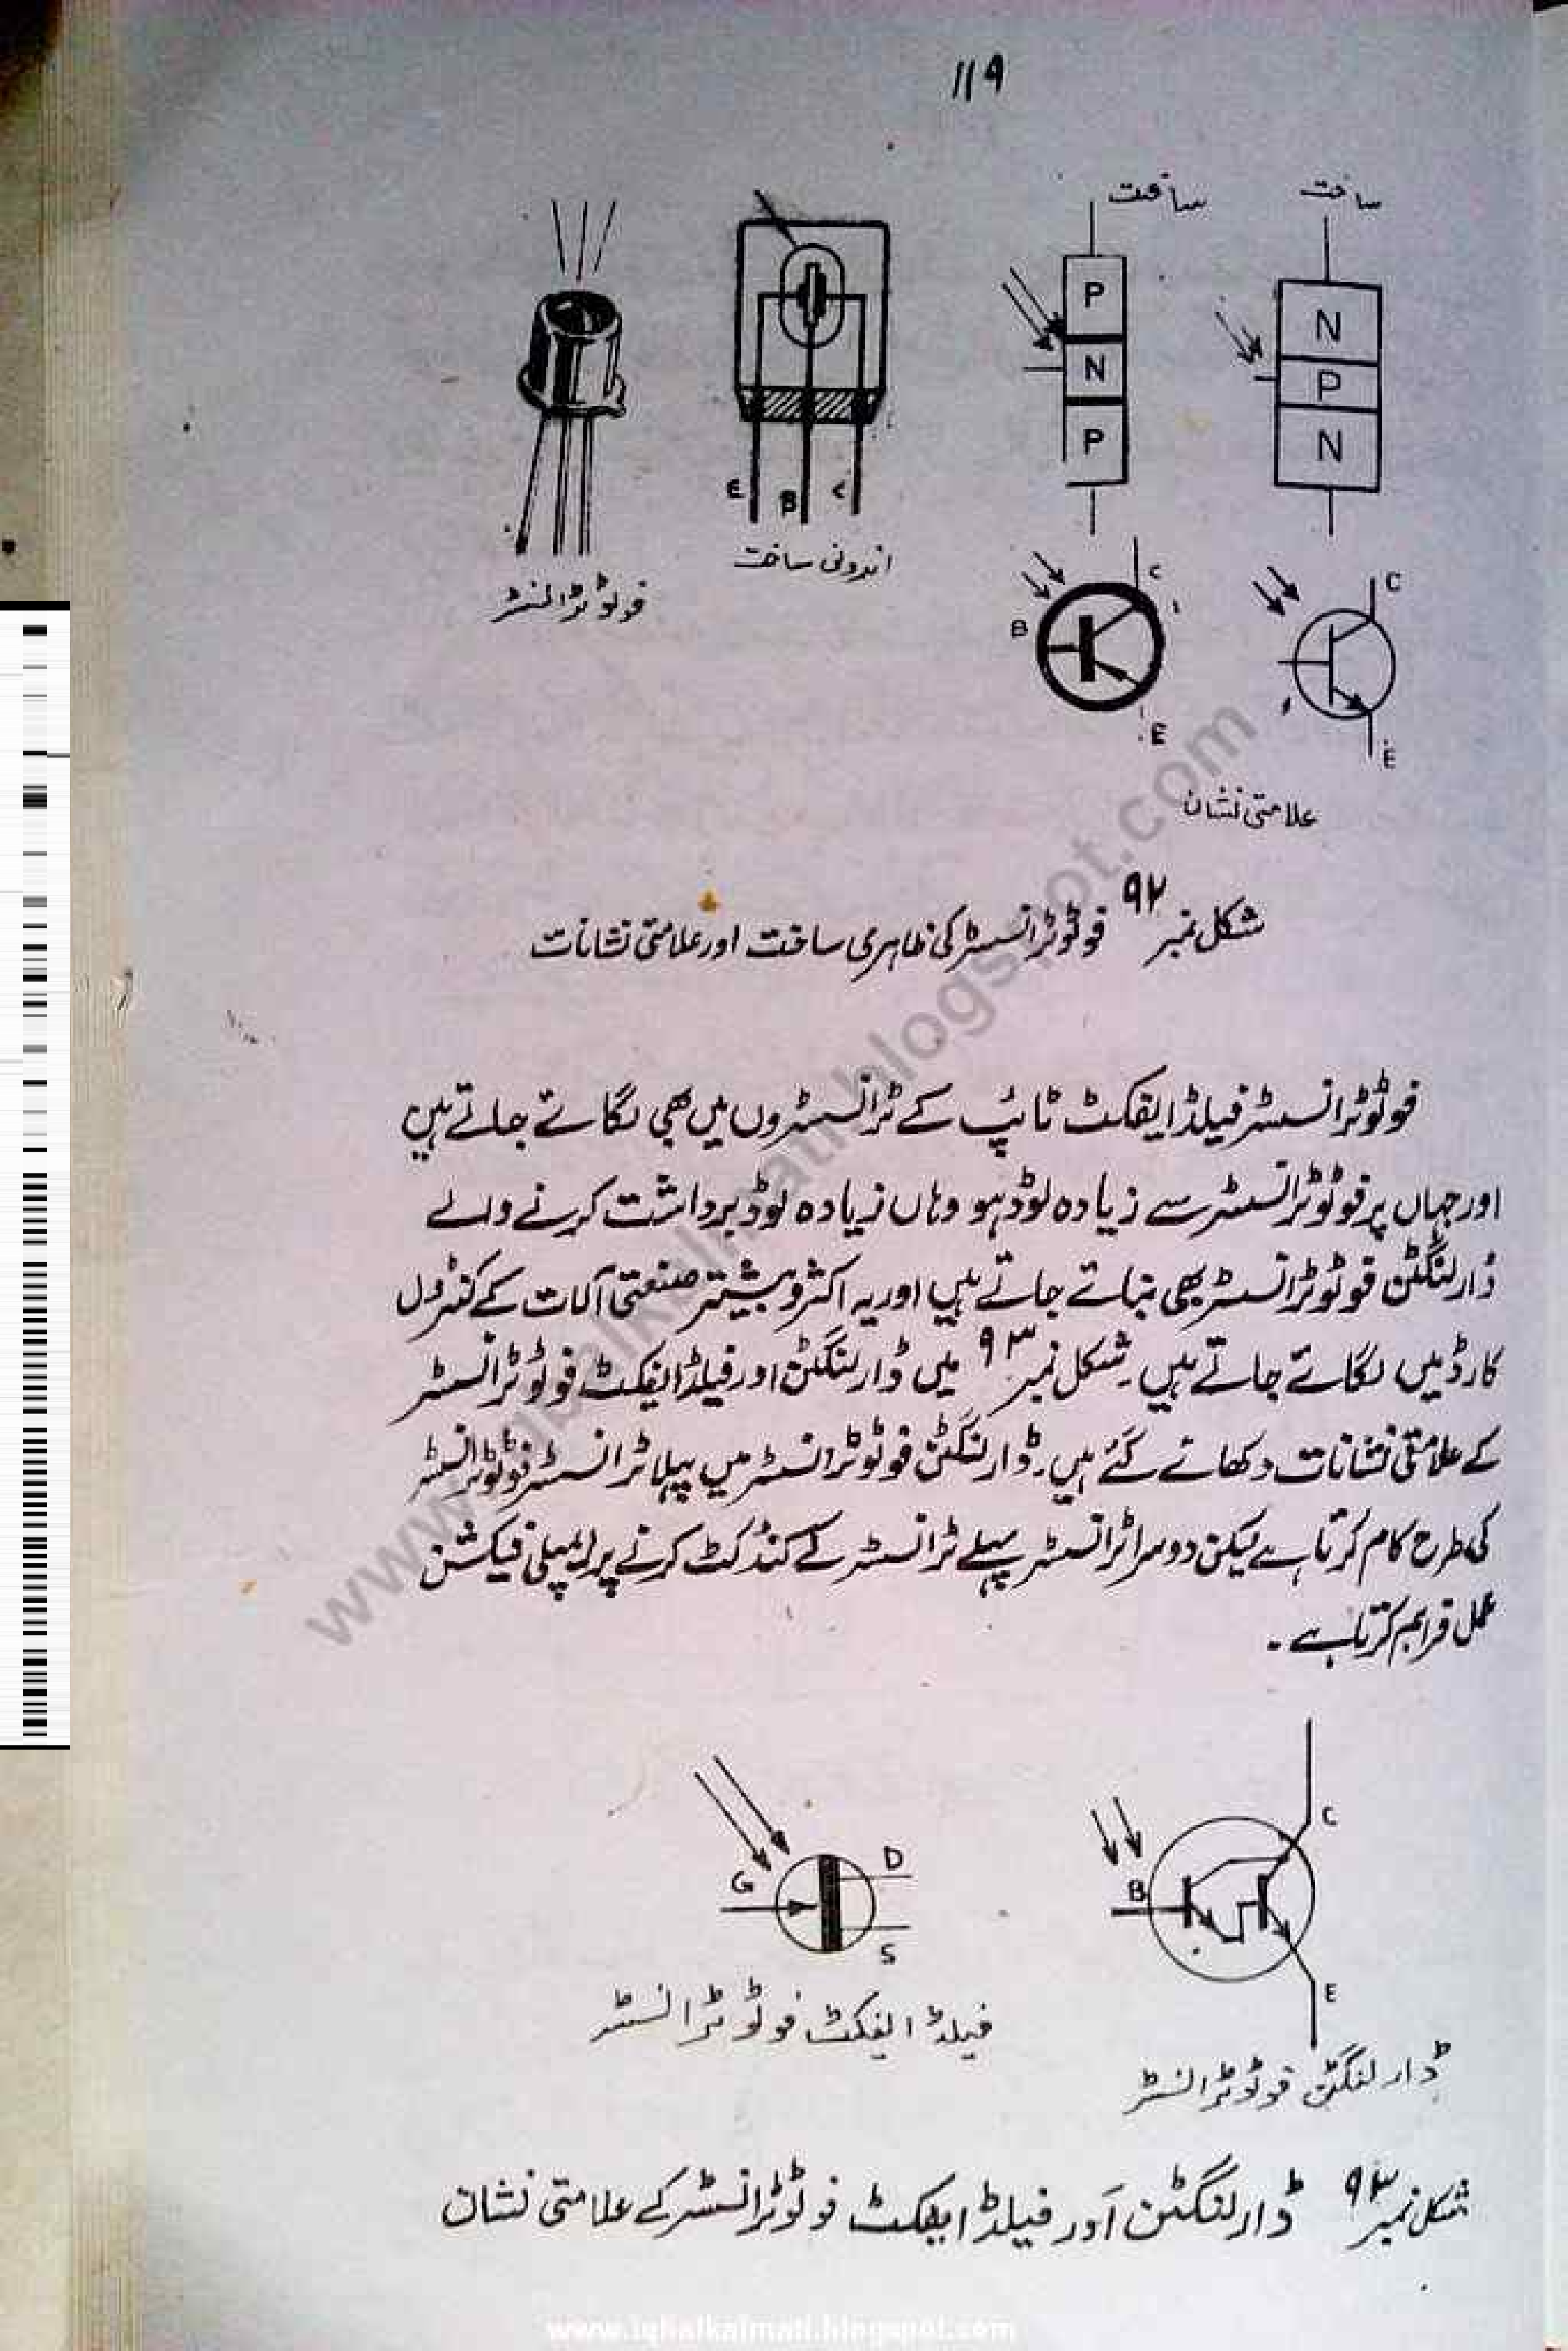 ۱۱۹
ساخت
ساخت
P
N
P
N
P
N
E
B
C
اندرونی ساخت
فوٹو ٹرانسسٹر
B
C
E
C
E
علامتی نشان
شکل نمبر ۹۲ فوٹو ٹرانسسٹر کی ظاہری ساخت اور علامتی نشانات
فوٹو ٹرانسسٹر فیلڈ ایفکٹ ٹائپ کے ٹرانسسٹروں میں بھی لگائے جاتے ہیں
اور جہاں پر فوٹو ٹرانسسٹر سے زیادہ لوڈ ہو وہاں زیادہ لوڈ برداشت کرنے والے
ڈارلنگٹن فوٹو ٹرانسسٹر بھی بنائے جاتے ہیں اور یہ اکثر و بیشتر صنعتی آلات کے کنٹرول
کارڈ میں لگائے جاتے ہیں۔ شکل نمبر ۹۳ میں ڈارلنگٹن اور فیلڈ ایفکٹ فوٹو ٹرانسسٹر
کے علامتی نشانات دکھائے گئے ہیں۔ ڈارلنگٹن فوٹو ٹرانسسٹر میں پہلا ٹرانسسٹر فوٹو ٹرانسسٹر
کی طرح کام کرتا ہے لیکن دوسرا ٹرانسسٹر پہلے ٹرانسسٹر کے کنڈکٹ کرنے پر ایمپلی فیکشن
عمل فراہم کرتا ہے۔
C
B
E
G
D
S
فیلڈ ایفکٹ فوٹو ٹرانسسٹر
ڈارلنگٹن فوٹو ٹرانسسٹر
شکل نمبر ۹۳ ڈارلنگٹن اور فیلڈ ایفکٹ فوٹو ٹرانسسٹر کے علامتی نشان
www.iqbalkalmati.blogspot.com
www.iqbalkalmati.blogspot.com